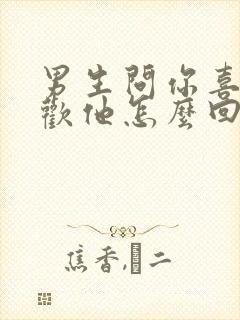 男生問你喜
歡他怎麼回
焦香,�二